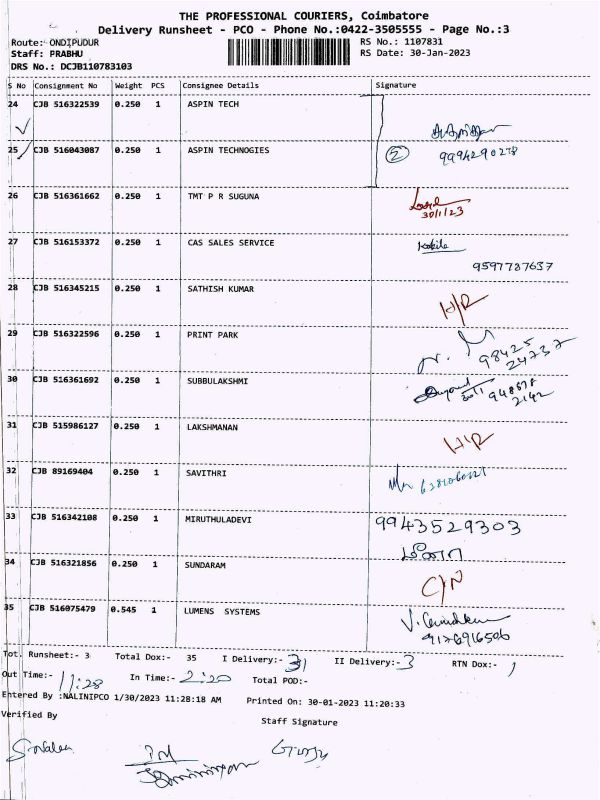 THE PROFESSIONAL COURIERS, Coimbatore
Delivery Runsheet - PCO - Phone No.:0422-3505555 - Page No.:3
Route: ONDIPUDUR
Staff: PRABHU
DRS No.: DCJB110783103
RS No.: 1107831
RS Date: 30-Jan-2023
S No Consignment No Weight PCS Consignee Details Signature
24 CJB 516322539 0.250 1 ASPIN TECH
25 CJB 516043087 0.250 1 ASPIN TECHNOGIES
2 9994290278
26 CJB 516361662 0.250 1 TMT P R SUGUNA
30/1/23
27 CJB 516153372 0.250 1 CAS SALES SERVICE
Kokila
9597787637
28 CJB 516345215 0.250 1 SATHISH KUMAR
H/R
29 CJB 516322596 0.250 1 PRINT PARK
98425
24737
30 CJB 516361692 0.250 1 SUBBULAKSHMI
31 CJB 515986127 0.250 1 LAKSHMANAN
H/R
32 CJB 89169404 0.250 1 SAVITHRI
33 CJB 516342108 0.250 1 MIRUTHULADEVI
9943529303
34 CJB 516321856 0.250 1 SUNDARAM
35 CJB 516075479 0.545 1 LUMENS SYSTEMS
9176916506
Tot. Runsheet:- 3 Total Dox:- 35 I Delivery:- 31 II Delivery:- 3 RTN Dox:- 1
Out Time:- 11:28 In Time:- 2:20 Total POD:-
Entered By :NALINIPCO 1/30/2023 11:28:18 AM Printed On: 30-01-2023 11:20:33
Verified By
Staff Signature